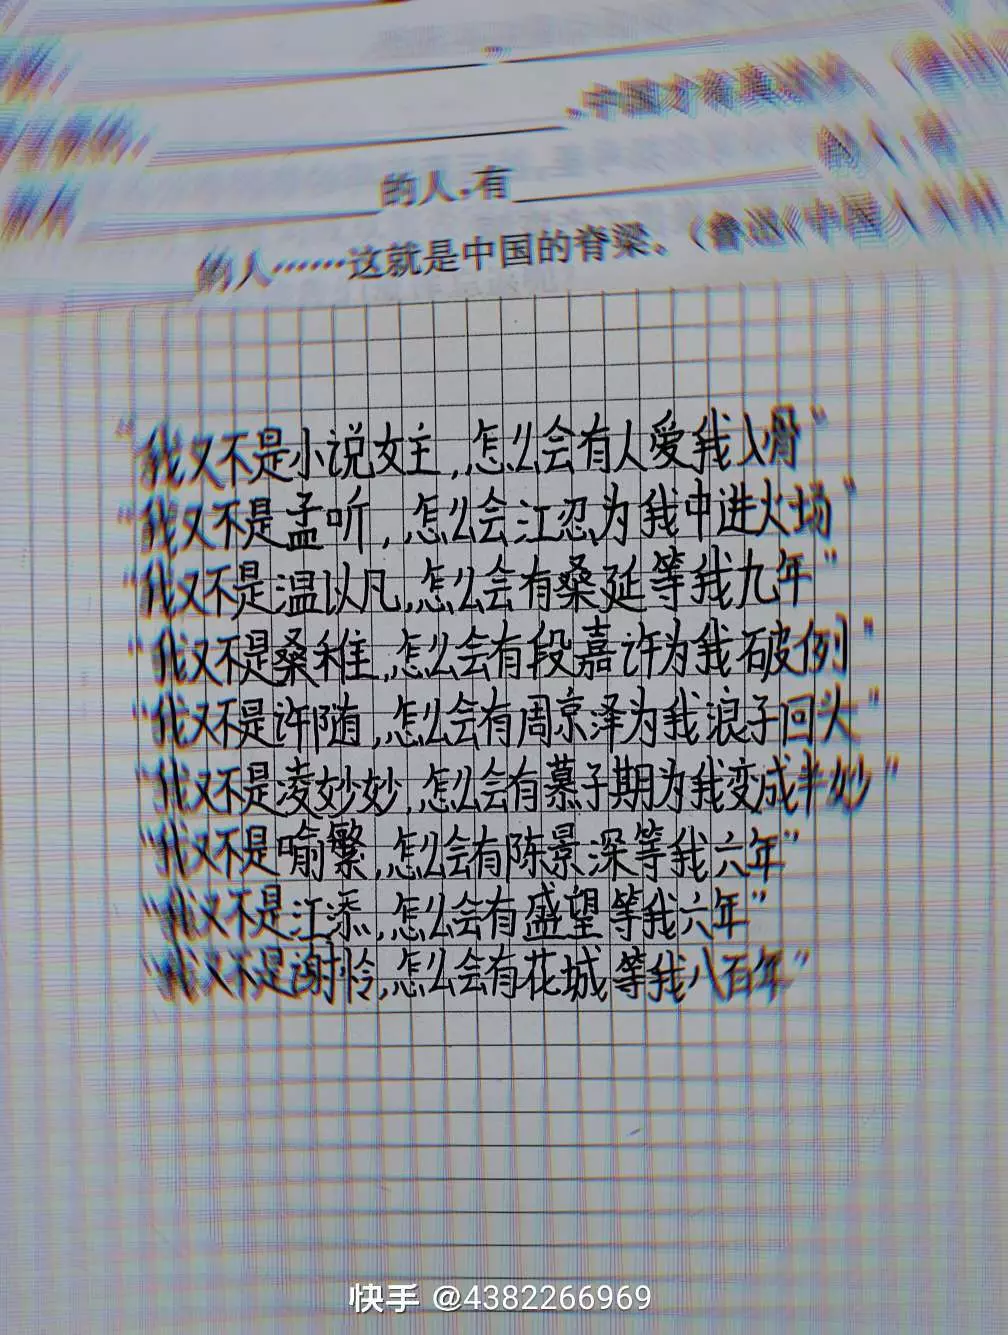 ，中国才有真
的人，有
的人……这就是中国的脊梁。（鲁迅《中国人
“我又不是小说女主，怎么会有人爱我入骨”
“我又不是孟听，怎么会江忍为我中进火场”
“我又不是温以凡，怎么会有桑延等我九年”
“我又不是桑稚，怎么会有段嘉许为我破例”
“我又不是许随，怎么会有周京泽为我浪子回头”
“我又不是凌妙妙，怎么会有慕子期为我变成半妙”
“我又不是喻繁，怎么会有陈景深等我六年”
“我又不是江添，怎么会有盛望等我六年”
“我又不是谢怜，怎么会有花城等我八百年”
快手 @4382266969